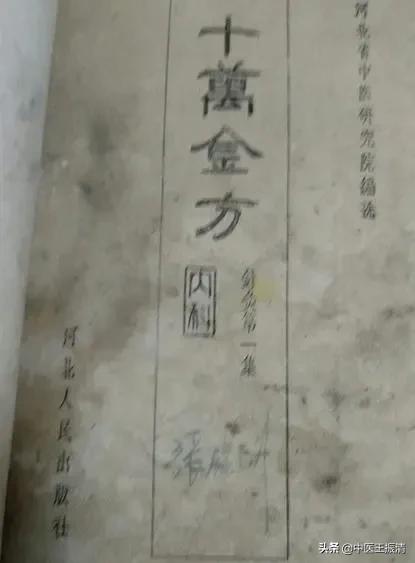 河北省中医研究院编选
十萬金方
内科
针灸第一集
河北人民出版社
头条 @中医王振清